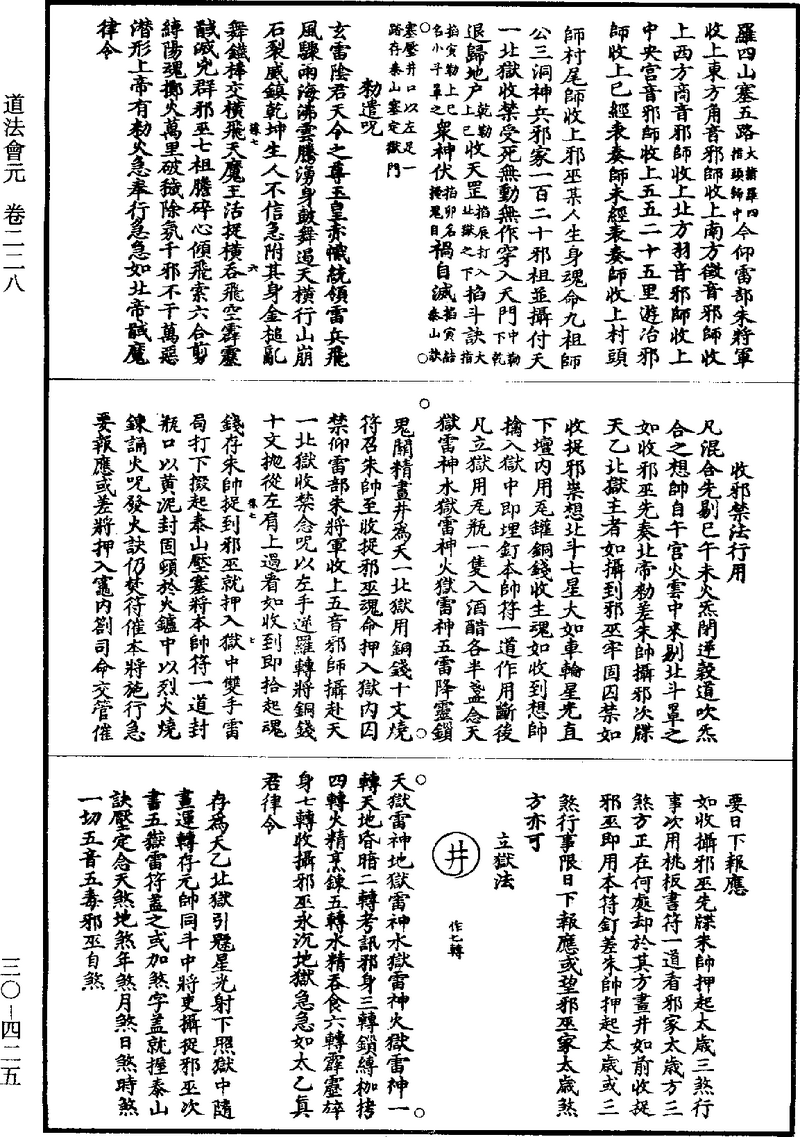 道法會元　卷二二八
三〇—四二五
羅四山塞五路大擁羅四指頭歸中今仰雷部朱將軍
收上東方角音邪師收上南方徵音邪師收
上西方商音邪師收上北方羽音邪師收上
中央宮音邪師收上五五二十五里遊冶邪
師收上已經表奏師未經表奏師收上村頭
師村尾師收上邪巫某人生身魂命九祖師
公三洞神兵邪家一百二十邪祖並攝付天
一北獄收禁受死無動無作穿入天門中勒下乾
退歸地戶乾勒上巳收天罡掐辰打入北獄之下掐斗訣大指
掐寅勒上巳名小子單之眾神伏掐卯名掩鬼目禍自滅掐寅結泰山訣
塞壓井口以左足一
路存泰山塞定獄門
勑遣呪
玄雷陰君天令之尊玉皇赤幟統領雷兵飛
風驟雨海沸雲騰湧身鼓舞遏天橫行山崩
石裂威鎮乾坤生人不信急附其身金槌亂
舞鐵棒交橫飛天魔王活捉橫吞飛空霹靂
馘滅兇群邪巫七祖膽碎心傾飛索六合剪
縛陽魂擲火萬里破穢除氛千邪不干萬惡
潛形上帝有勑火急奉行急急如北帝馘魔
律令
收邪禁法行用
凡混合先剔巳午未火炁閉逆轂道吹炁
合之想帥自午宮火雲中來剔北斗罩之
如收邪巫先奏北帝勑差朱帥攝邪次牒
天乙北獄主者如攝到邪巫牢固囚禁如
收捉邪祟想北斗七星大如車輪星光直
下壇內用瓦罐銅錢收生魂如收到想帥
擒入獄中即埋釘本帥符一道作用斷後
凡立獄用瓦瓶一隻入酒醋各半盞念天
獄雷神水獄雷神火獄雷神五雷降靈鎖
鬼關精畫井為天一北獄用銅錢十文燒
符召朱帥至收捉邪巫魂命押入獄內囚
禁仰雷部朱將軍收上五音邪師攝赴天
一北獄收禁念呪以左手逆羅轉將銅錢
十文拋從左肩上過看如收到即拾起魂
錢存朱帥捉到邪巫就押入獄中雙手雷
局打下掇起泰山壓塞將本帥符一道封
瓶口以黃泥封固頭於火鑪中以烈火燒
鍊誦火呪發火訣仍焚符催本將施行急
要報應或差將押入竈內劄司命交管催
要日下報應
如收攝邪巫先牒朱帥押起太歲三煞行
事次用桃板書符一道看邪家太歲方三
煞方正在何處却於其方畫井如前收捉
邪巫即用本符釘差朱帥押起太歲或三
煞行事限日下報應或望邪巫家太歲煞
方亦可
立獄法
井
作七轉
天獄雷神地獄雷神水獄雷神火獄雷神一
轉天地昏暗二轉考訊邪身三轉鎖縛枷拷
四轉火精烹鍊五轉水精吞食六轉霹靂碎
身七轉收攝邪巫永沉地獄急急如太乙真
君律令
存為天乙北獄引魁星光射下照獄中隨
畫運轉存元帥同斗中將吏攝捉邪巫次
書五嶽雷符蓋之或加煞字蓋就握泰山
訣壓定念天煞地煞年煞月煞日煞時煞
一切五音五毒邪巫自煞